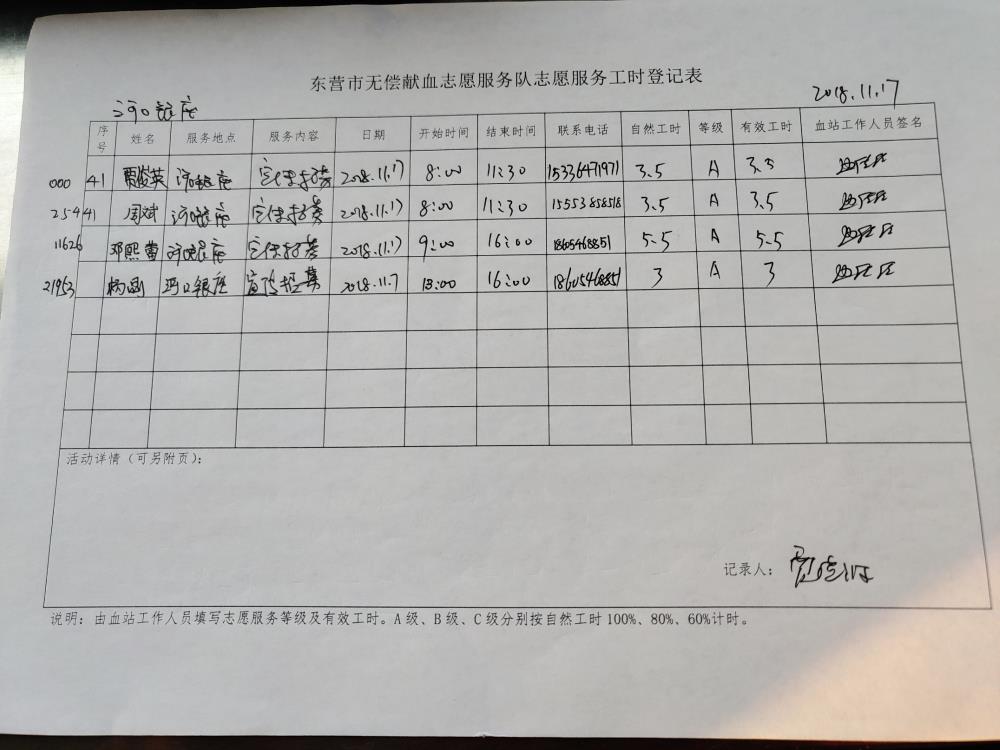 东营市无偿献血志愿服务队志愿服务工时登记表
河口银座 2018.11.17
序号 姓名 服务地点 服务内容 日期 开始时间 结束时间 联系电话 自然工时 等级 有效工时 血站工作人员签名
000 41 贾俊英 河口银座 宣传招募 2018.11.17 8:00 11:30 15336471971 3.5 A 3.5
254 41 周斌 河口银座 宣传招募 2018.11.17 8:00 11:30 15553858518 3.5 A 3.5
11626 邓熙蕾 河口银座 宣传招募 2018.11.17 9:00 16:00 18605468851 5.5 A 5.5
21953 杨 河口银座 宣传招募 2018.11.7 13:00 16:00 18605468851 3 A 3
活动详情（可另附页）：
记录人：
说明：由血站工作人员填写志愿服务等级及有效工时。A级、B级、C级分别按自然工时100%、80%、60%计时。